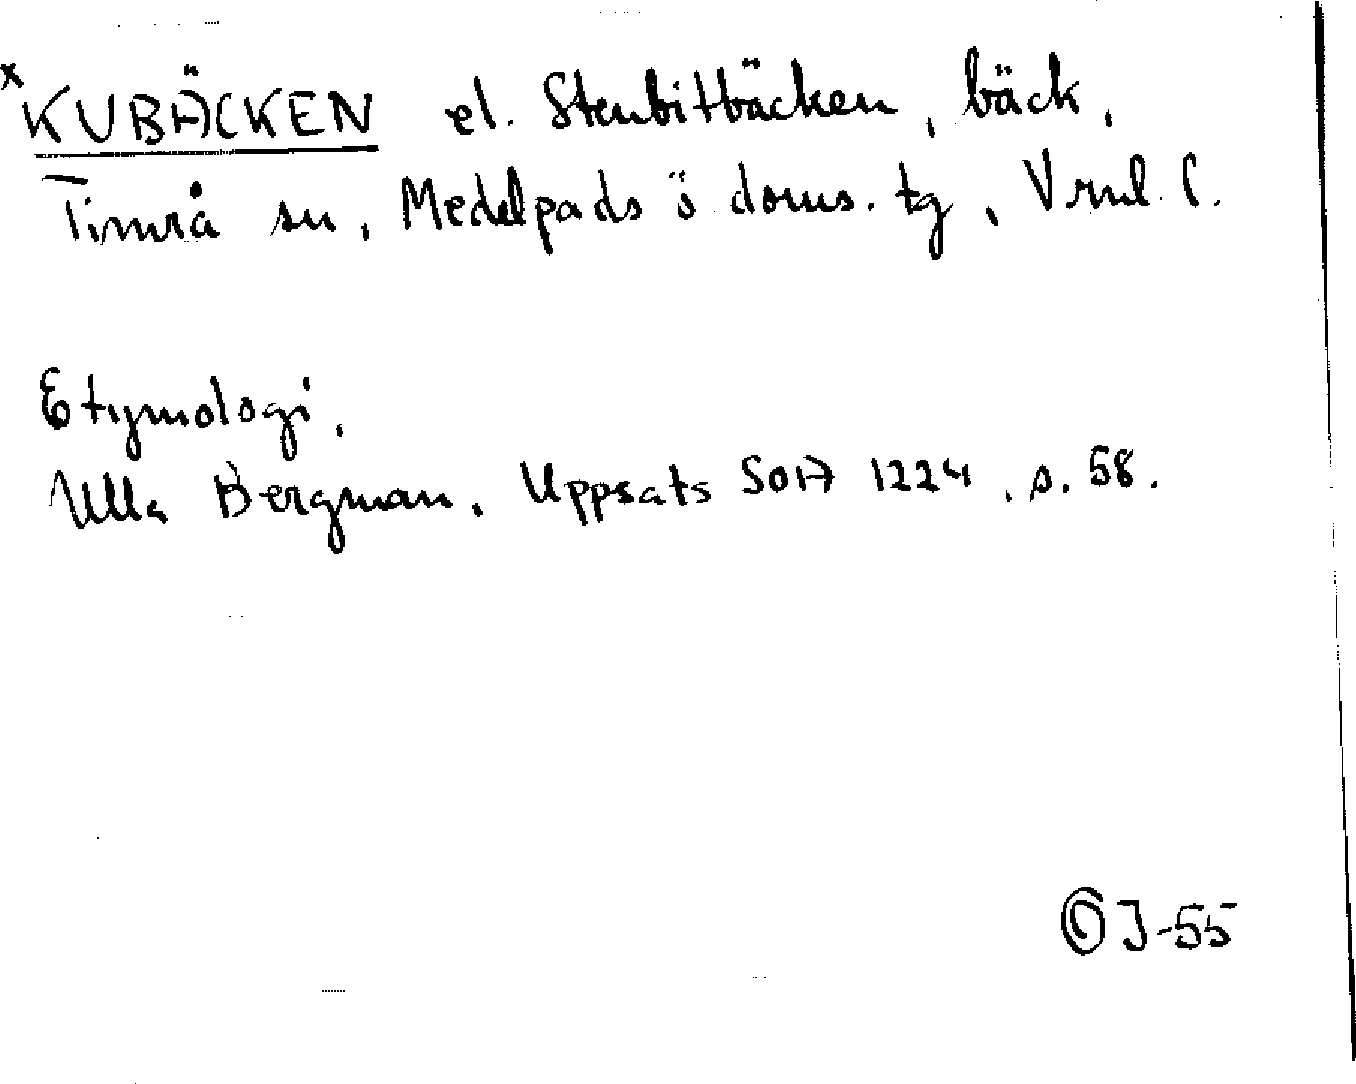 x KUBÄCKEN el. Stenbitbäcken, bäck,
Timrå sn, Medelpads ö doms. tg, Vrnl. l.
Etymologi.
Ulla Bergman, Uppsats SOA 1224, s. 58.
J-55